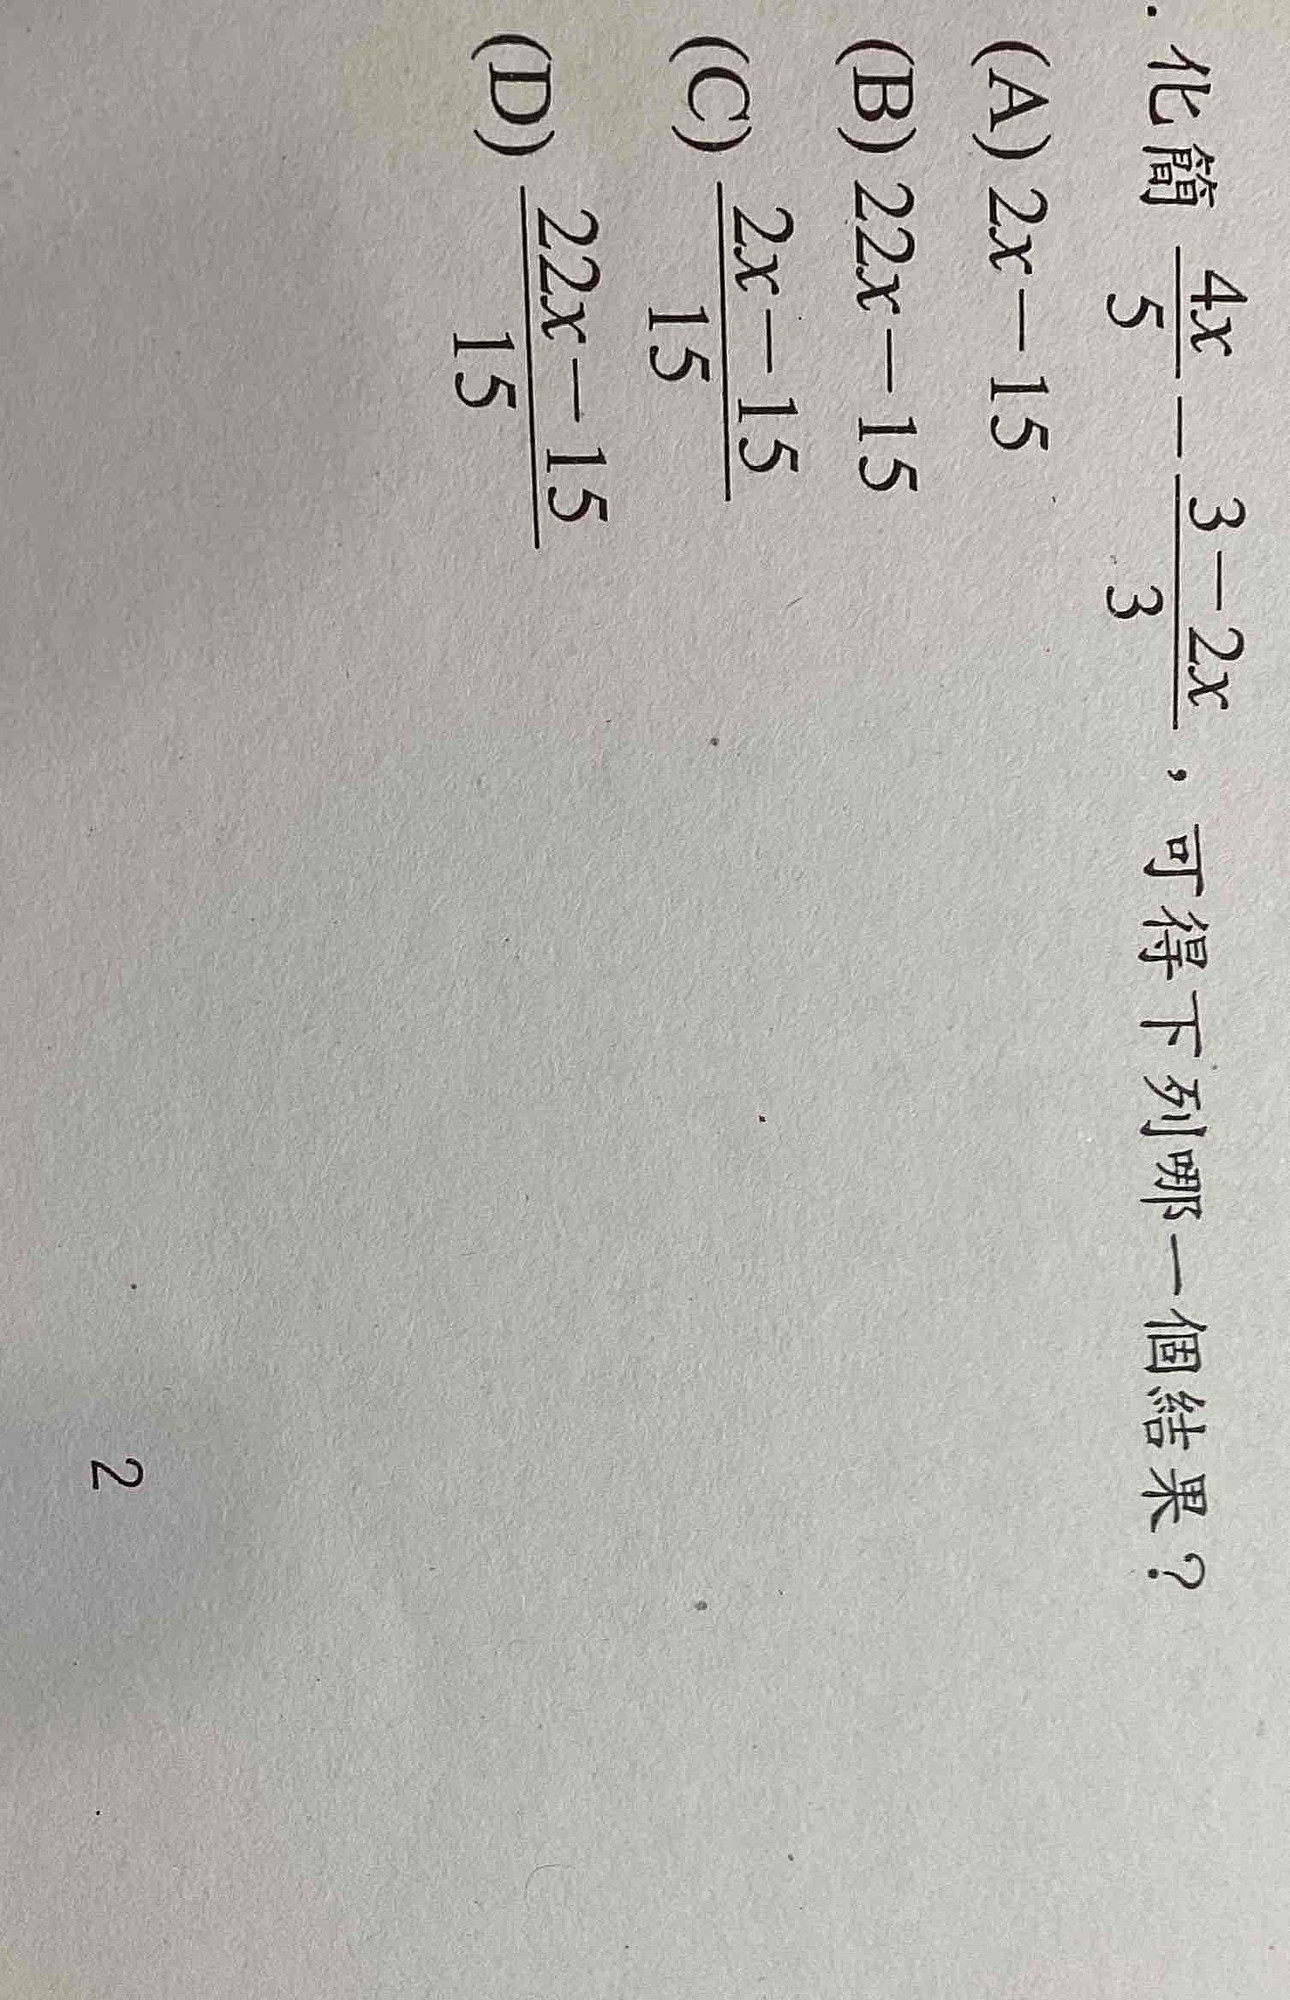 . 化簡 4x/5 − 3−2x/3 ，可得下列哪一個結果？
(A) 2x−15
(B) 22x−15
(C) 2x−15/15
(D) 22x−15/15
2